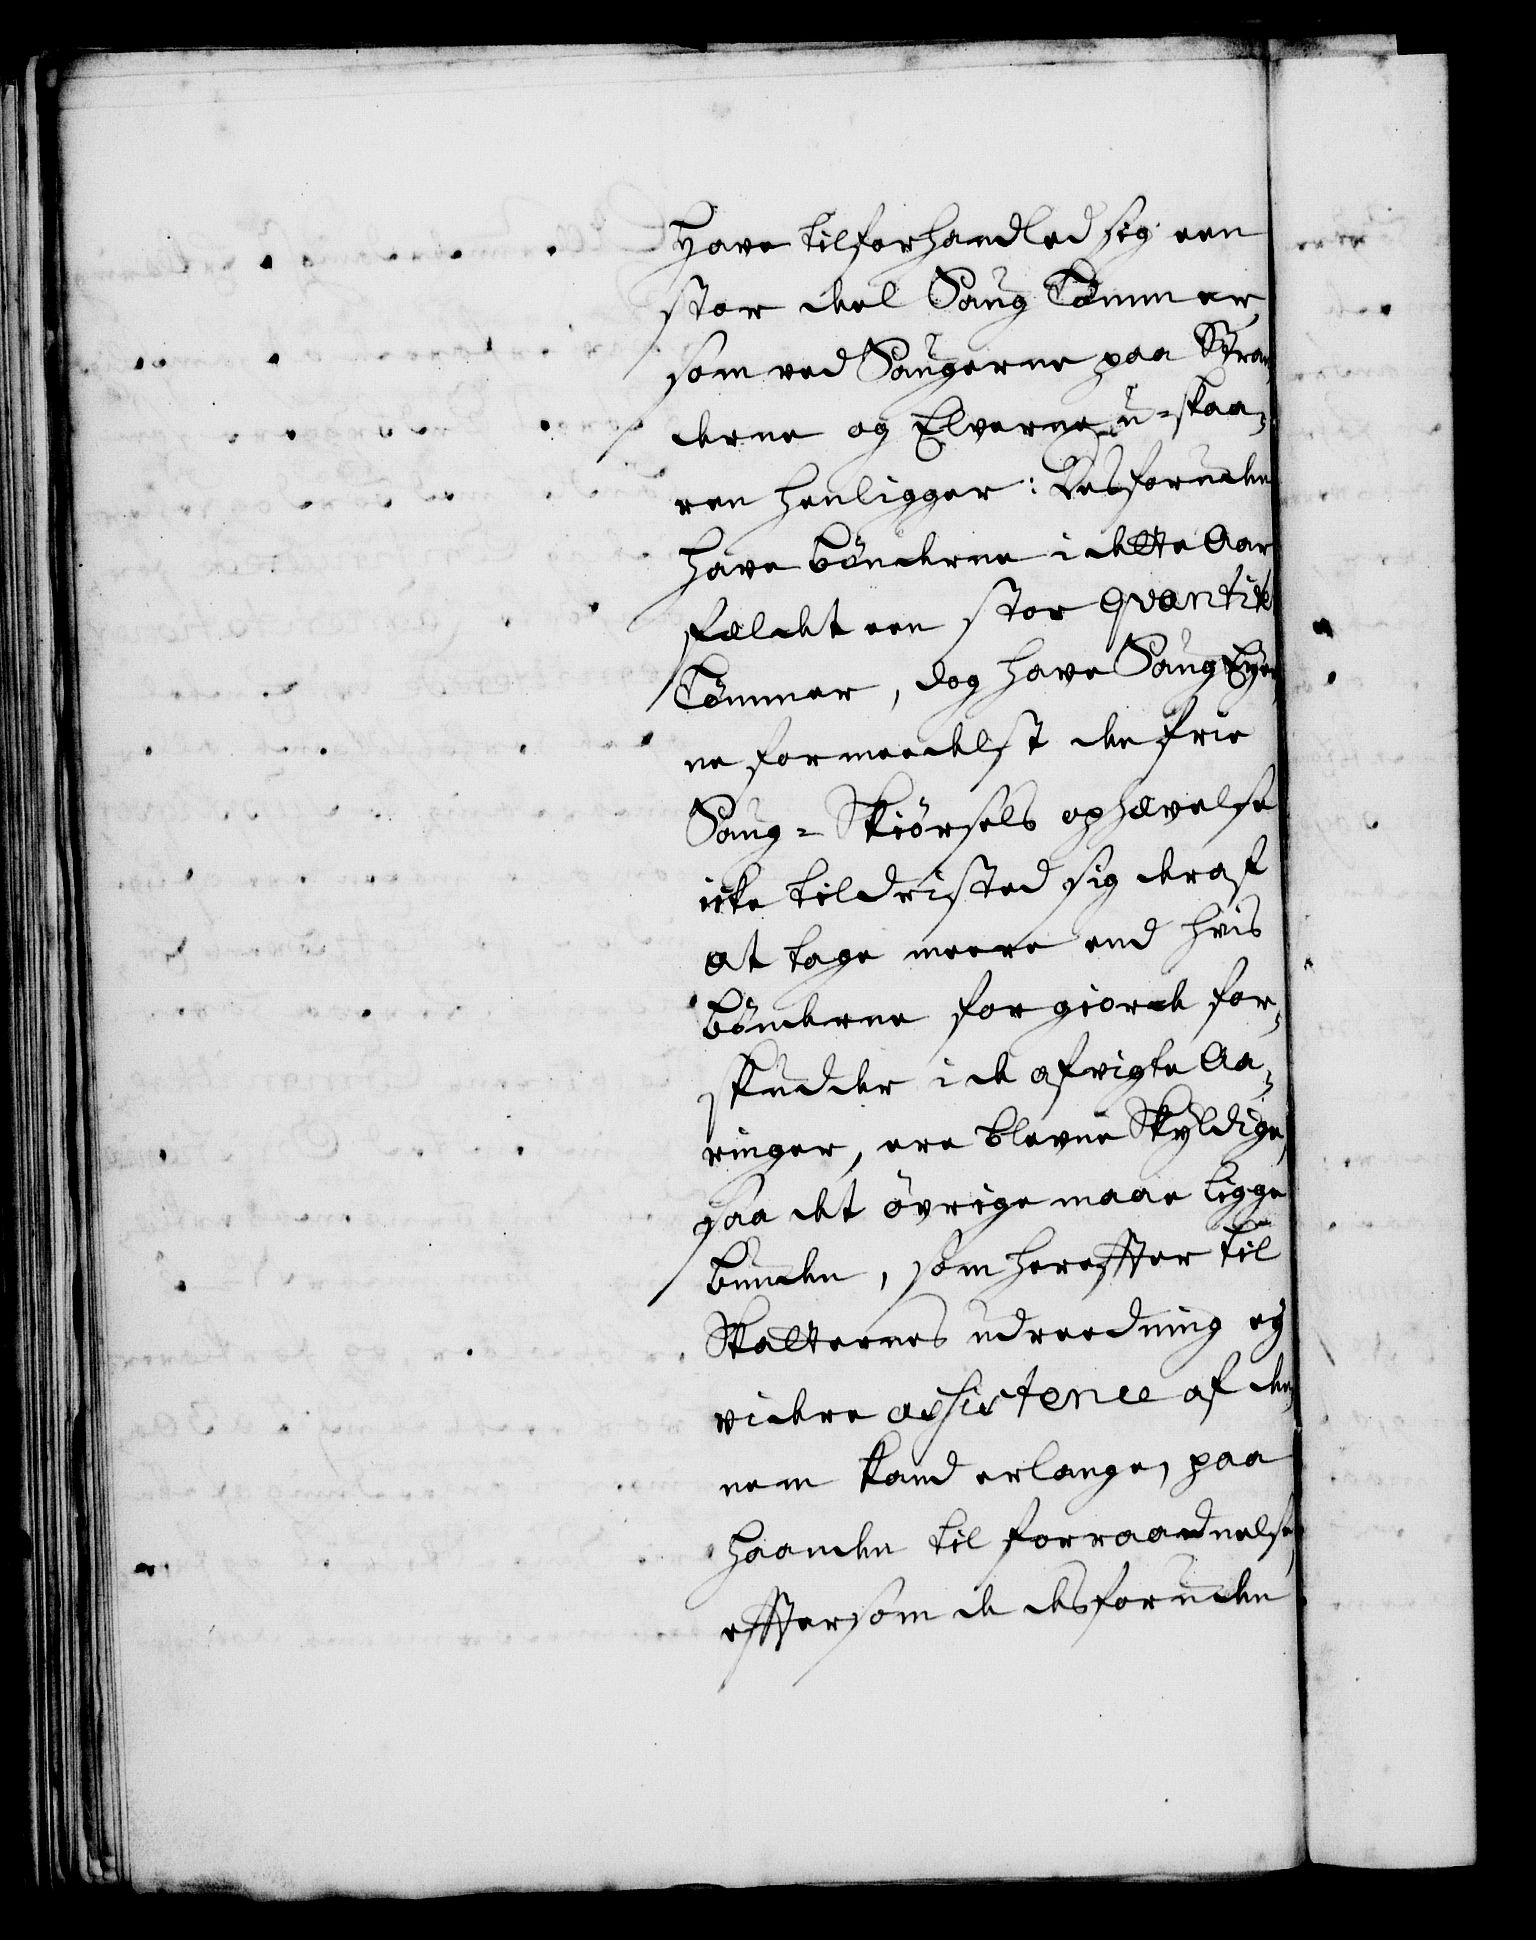 have tilforhandled sig een
stor deel Saug Tømmer,
som ved Saugerne paa Stran¬
derne og Elverne u-skaa¬
ren henligger: Desforuden
have bønderne i dette Aar
fældet een stor qvantitet
Tømmer, dog have Saug Eyer¬
ne formeedelst den frie
Saug-Skiørsels ophævelse
icke tildristed sig deraf
at tage meere end hvis
bønderne for giorde for¬
skudder i de afvigte Aa¬
ringer, ere blevne skyldige,
saa det øvrige maae ligge
bunden, som hereffter til
Skatternes udreedning og
videre assistence af den¬
nem kand erlange, paa
haanden til forraadnelse,
efftersom de desforuden